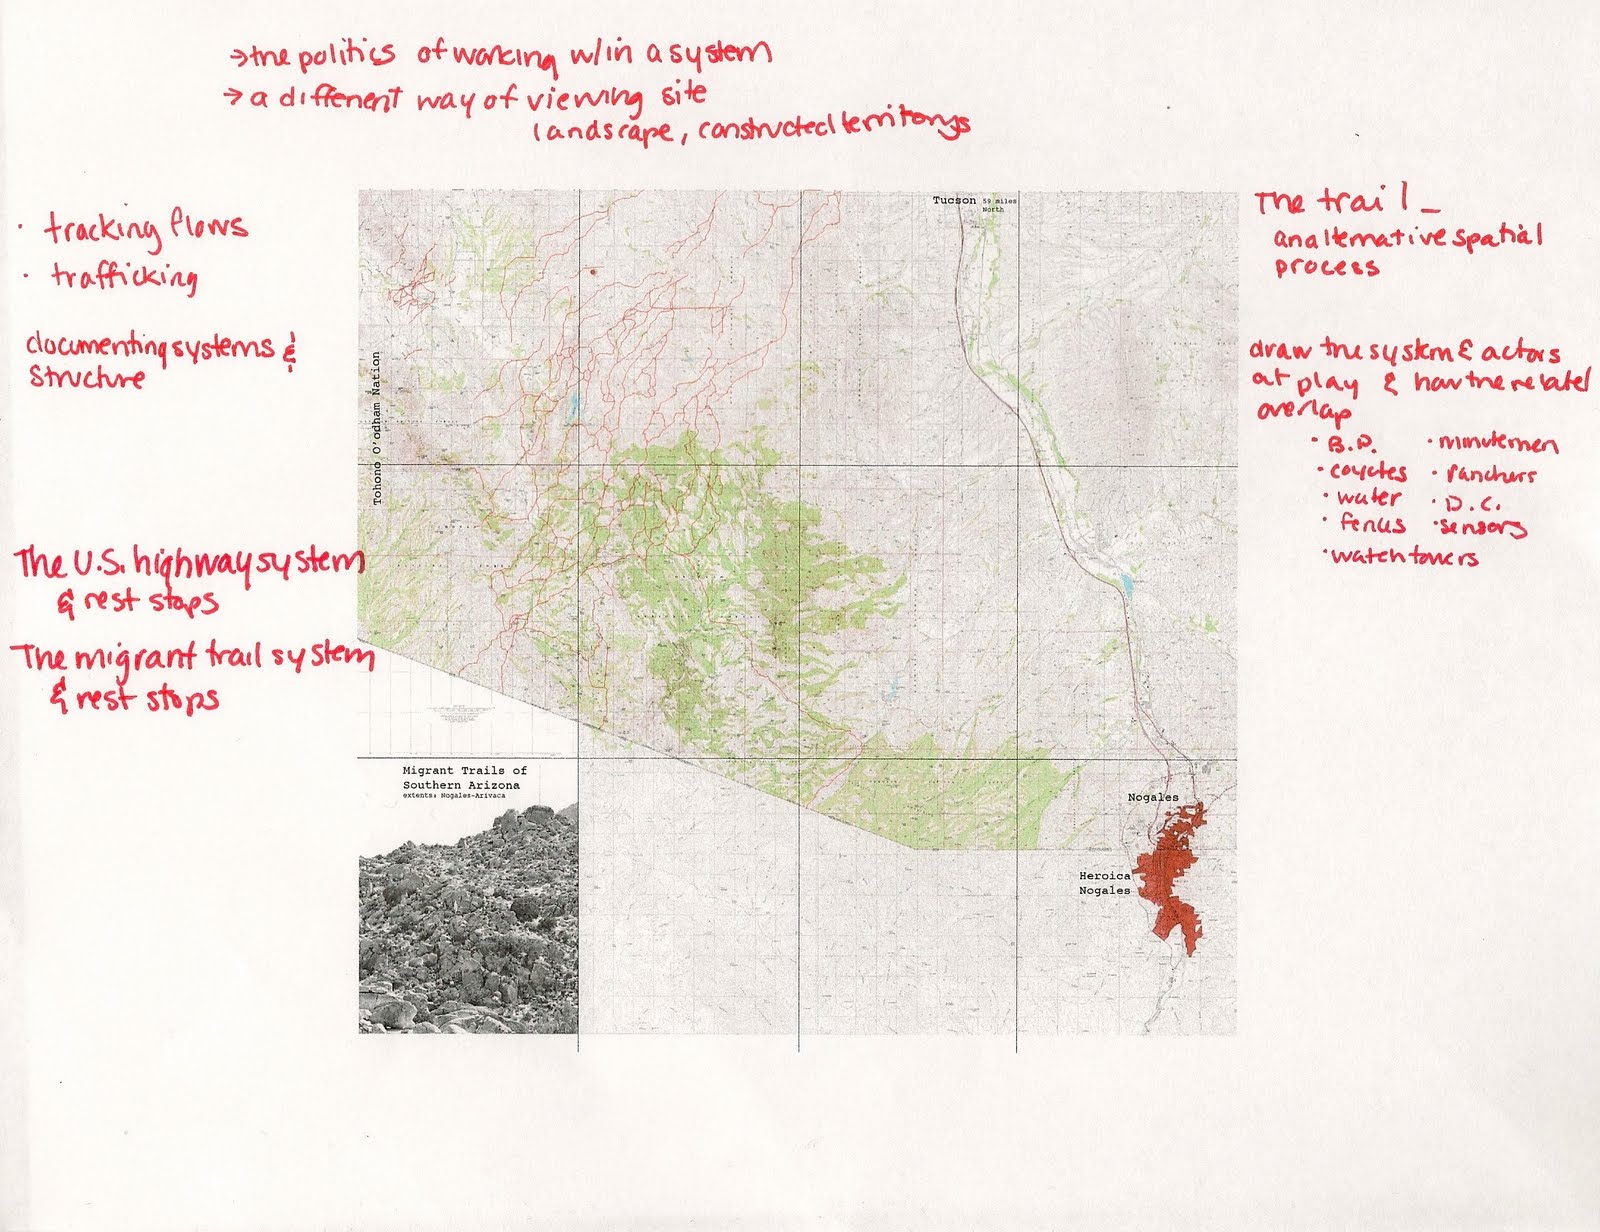 →the politics of working w/in a system
→ a different way of viewing site
landscape, constructed territorys
· tracking flows
· trafficking
documenting systems &
structure
The U.S. highway system
& rest stops
The migrant trail system
& rest stops
Tucson 59 miles
North
Tohono O'odham Nation
Migrant Trails of
Southern Arizona
extents: Nogales-Arivaca
Nogales
Heroica
Nogales
The trail_
an alternative spatial
process
draw the system & actors
at play & how the related
overlap
· B.P.
· coyotes
· water
· fences
· watch towers
· minutemen
· ranchers
· D.C.
· sensors